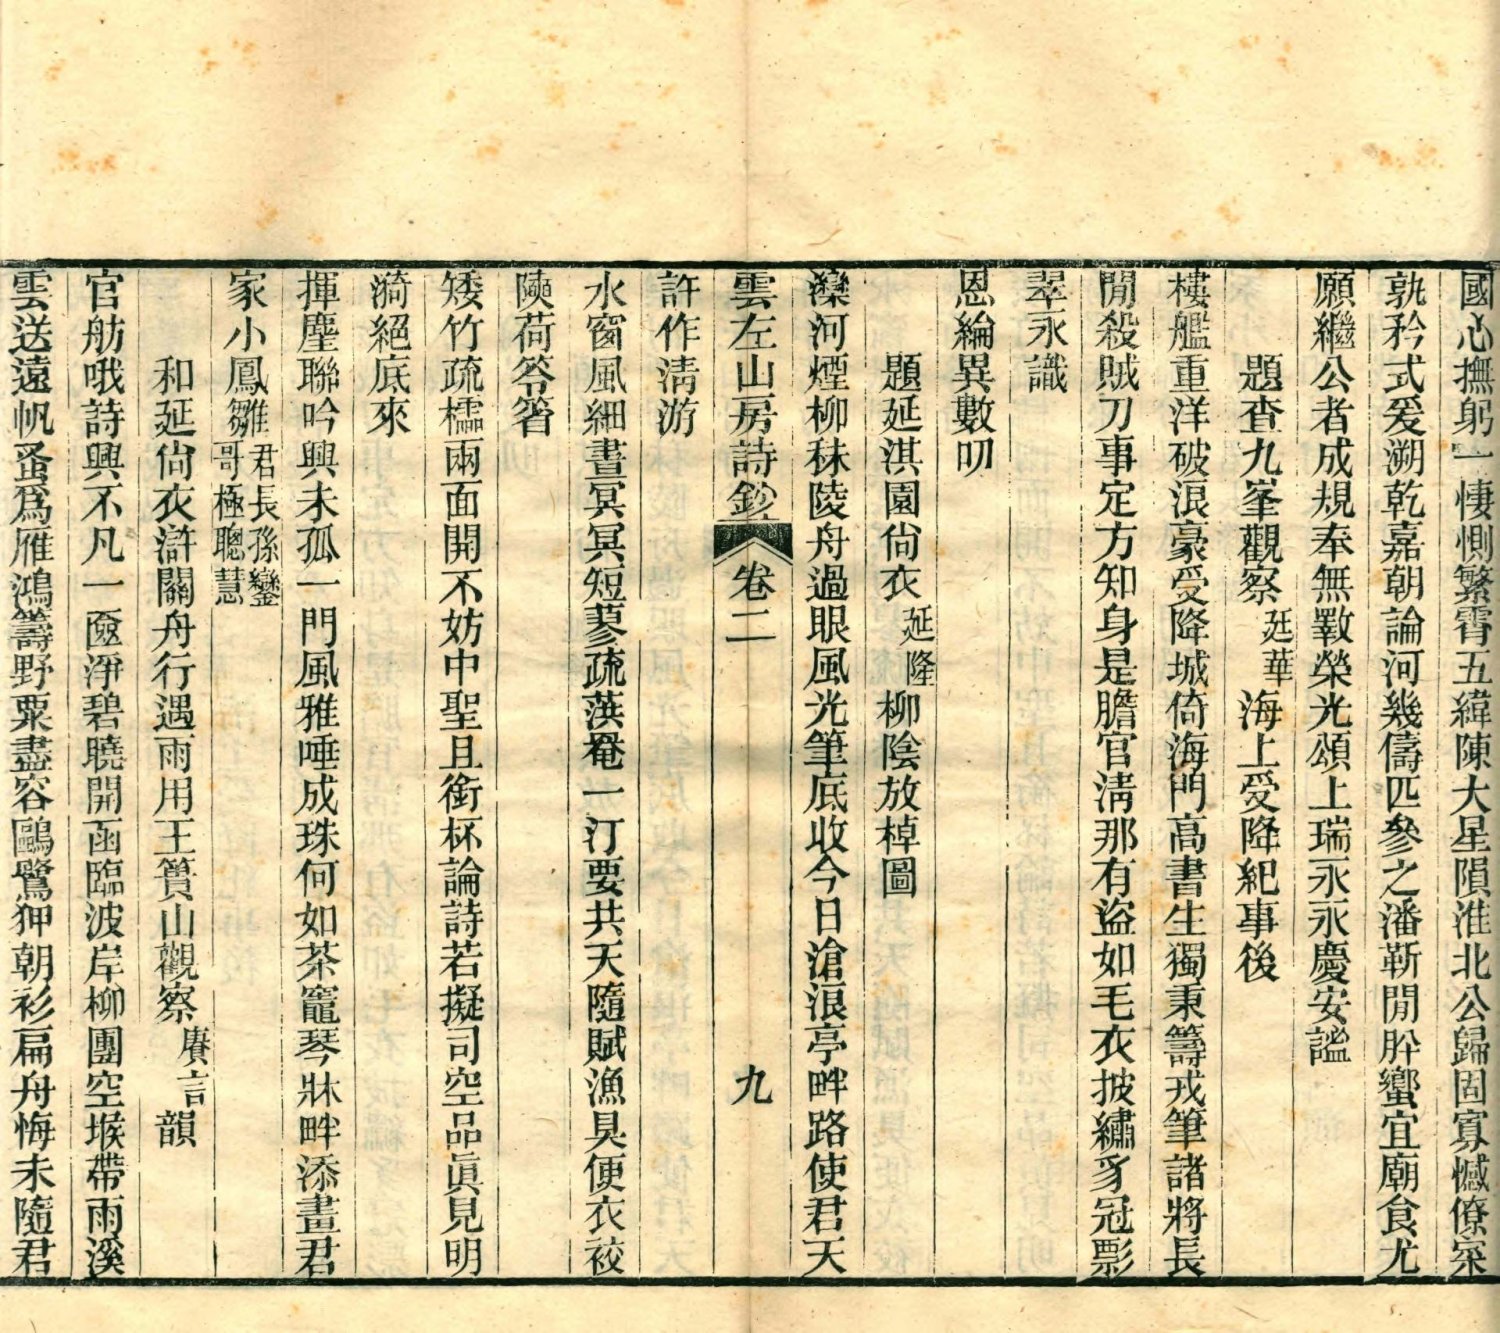 國心撫躬一悽惻繁霄五緯陳大星隕淮北公歸固寡憾僚寀
孰矜式爰溯乾嘉朝論河幾儔匹參之潘靳間肸蠁宜廟食尤
願繼公者成規奉無斁榮光頌上瑞永永慶安謐
題查九峯觀察延華海上受降紀事後
樓艦重洋破浪豪受降城倚海門高書生獨秉籌戎筆諸將長
閒殺賊刀事定方知身是膽官淸那有盜如毛衣披繡豸冠影
翠永識
恩綸異數叨
題延淇園尙衣延隆柳陰放棹圖
灤河煙柳秣陵舟過眼風光筆底收今日滄浪亭畔路使君天
雲左山房詩鈔 卷二 九
許作淸游
水窗風細晝冥冥短蓼疏葓罨一汀要共天隨賦漁具便衣袯
襫荷笭箵
矮竹疏櫺兩面開不妨中聖且銜杯論詩若擬司空品眞見明
漪絕底來
揮麈聯吟興未孤一門風雅唾成珠何如茶竈琴牀畔添畫君
家小鳳雛君長孫鑾哥極聰慧
和延尙衣滸關舟行遇雨用王簣山觀察賡言韻
官舫哦詩興不凡一奩淨碧曉開函臨波岸柳團空堠帶雨溪
雲送遠帆蚤爲雁鴻籌野粟盡容鷗鷺狎朝衫扁舟悔未隨君